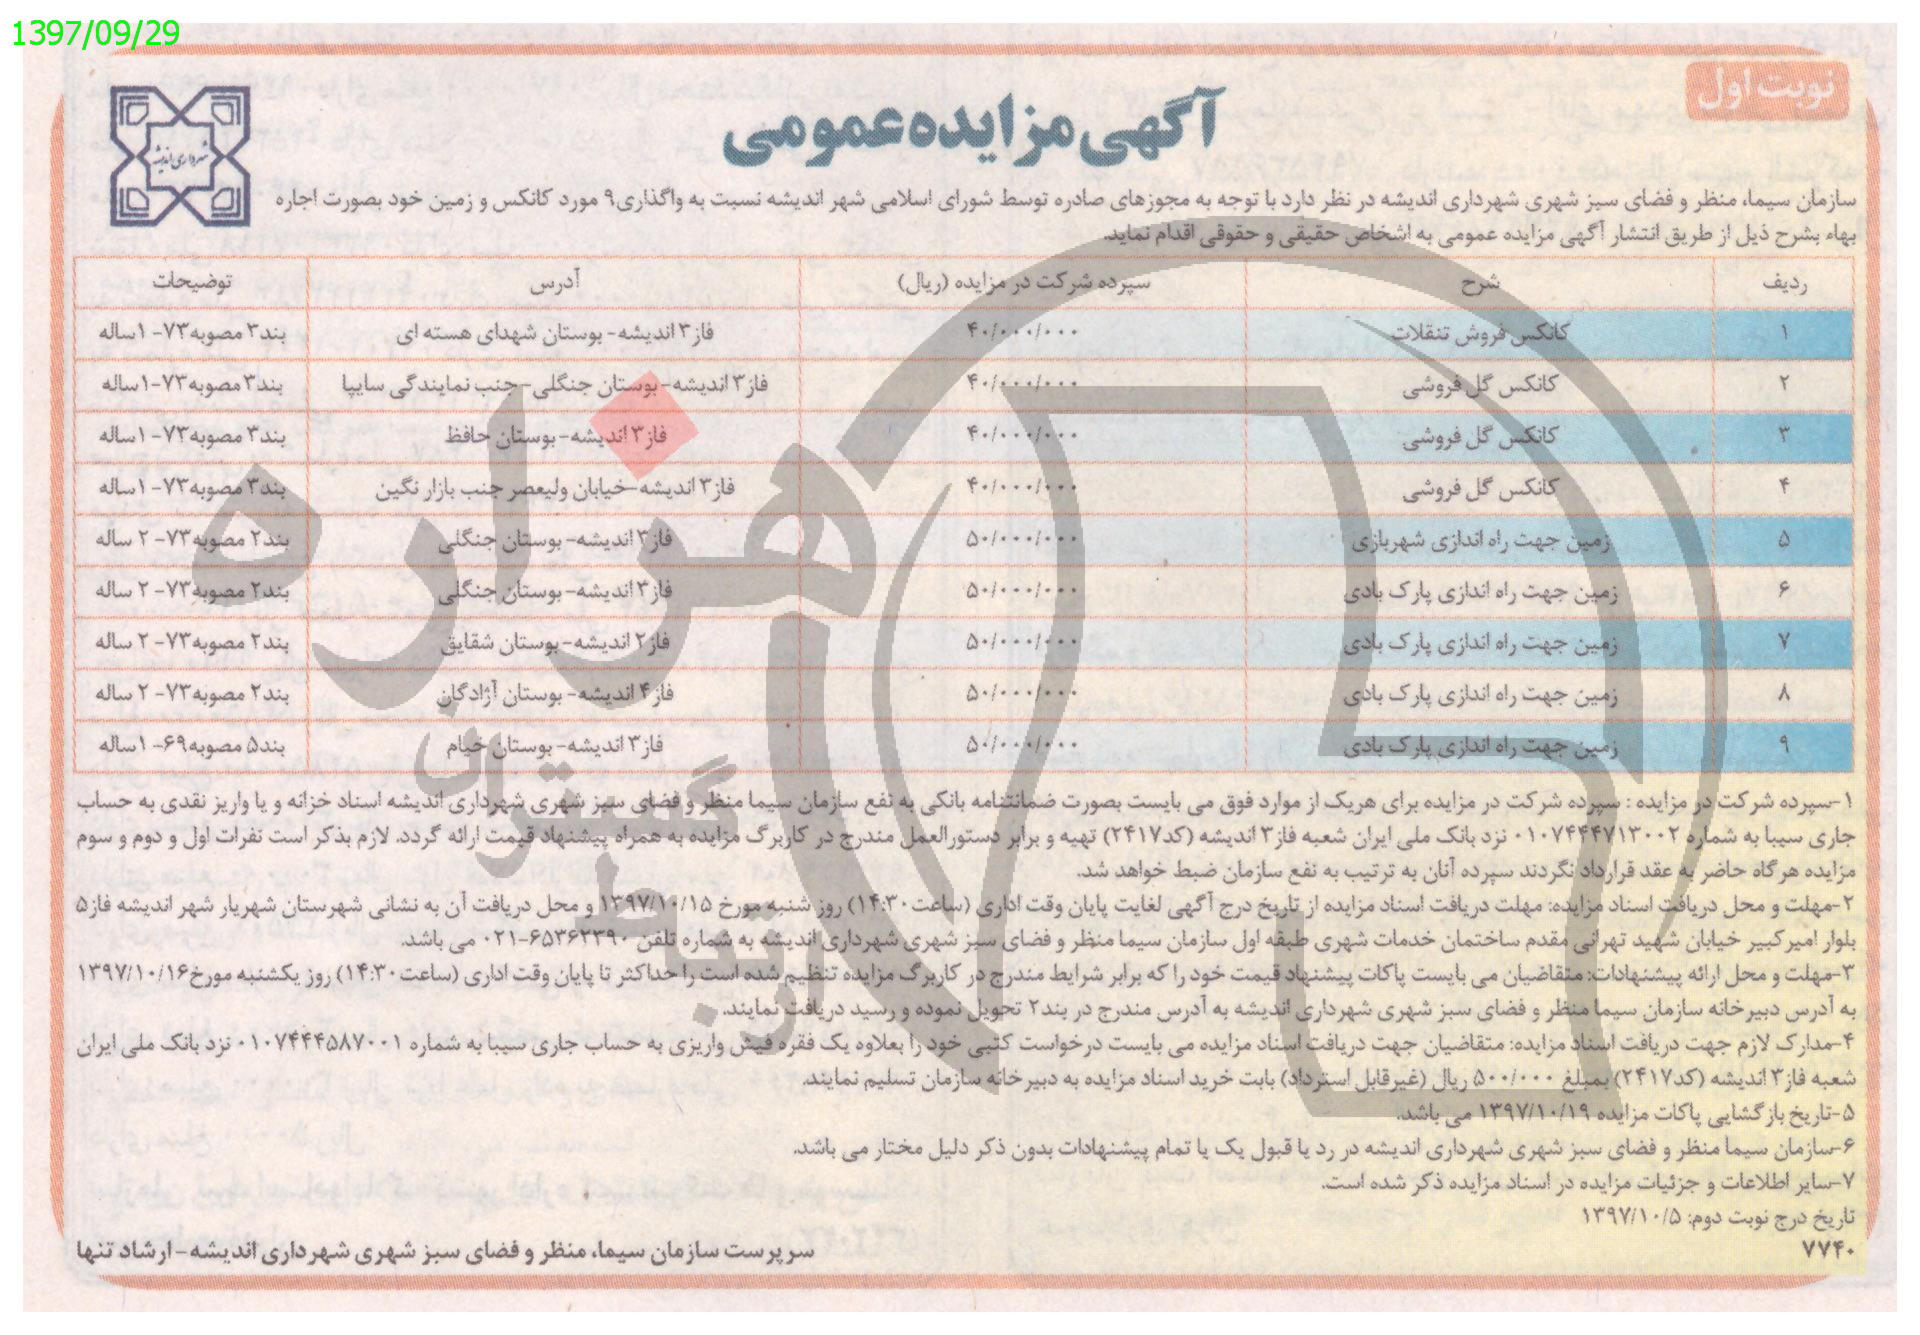 1397/09/29
نوبت اول
آگهی مزایده عمومی
شهرداری اندیشه
سازمان سیما، منظر و فضای سبز شهری شهرداری اندیشه در نظر دارد با توجه به مجوزهای صادره توسط شورای اسلامی شهر اندیشه نسبت به واگذاری۹ مورد کانکس و زمین خود بصورت اجاره
بهاء بشرح ذیل از طریق انتشار آگهی مزایده عمومی به اشخاص حقیقی و حقوقی اقدام نماید.
ردیف شرح سپرده شرکت در مزایده (ریال) آدرس توضیحات
۱ کانکس فروش تنقلات ۴۰/۰۰۰/۰۰۰ فاز۳ اندیشه- بوستان شهدای هسته ای بند۳ مصوبه۷۳- ۱ساله
۲ کانکس گل فروشی ۴۰/۰۰۰/۰۰۰ فاز۳ اندیشه-بوستان جنگلی-جنب نمایندگی سایپا بند۳ مصوبه۷۳-۱ساله
۳ کانکس گل فروشی ۴۰/۰۰۰/۰۰۰ فاز۳ اندیشه-بوستان حافظ بند۳ مصوبه۷۳- ۱ساله
۴ کانکس گل فروشی ۴۰/۰۰۰/۰۰۰ فاز۳ اندیشه-خیابان ولیعصر جنب بازار نگین بند۳ مصوبه۷۳- ۱ساله
۵ زمین جهت راه اندازی شهربازی ۵۰/۰۰۰/۰۰۰ فاز۳ اندیشه- بوستان جنگلی بند۲ مصوبه۷۳- ۲ ساله
۶ زمین جهت راه اندازی پارک بادی ۵۰/۰۰۰/۰۰۰ فاز۳ اندیشه- بوستان جنگلی بند۲ مصوبه۷۳- ۲ ساله
۷ زمین جهت راه اندازی پارک بادی ۵۰/۰۰۰/۰۰۰ فاز۲ اندیشه-بوستان شقایق بند۲ مصوبه۷۳- ۲ ساله
۸ زمین جهت راه اندازی پارک بادی ۵۰/۰۰۰/۰۰۰ فاز۴ اندیشه- بوستان آزادگان بند۲ مصوبه۷۳- ۲ ساله
۹ زمین جهت راه اندازی پارک بادی ۵۰/۰۰۰/۰۰۰ فاز۳ اندیشه-بوستان خیام بند۵ مصوبه۶۹- ۱ساله
۱-سپرده شرکت در مزایده : سپرده شرکت در مزایده برای هریک از موارد فوق می بایست بصورت ضمانتنامه بانکی به نفع سازمان سیما منظر و فضای سبز شهری شهرداری اندیشه اسناد خزانه و یا واریز نقدی به حساب
جاری سیبا به شماره ۰۱۰۷۴۴۴۷۱۳۰۰۲ نزد بانک ملی ایران شعبه فاز۳ اندیشه (کد۲۴۱۷) تهیه و برابر دستورالعمل مندرج در کاربرگ مزایده به همراه پیشنهاد قیمت ارائه گردد. لازم بذکر است نفرات اول و دوم و سوم
مزایده هرگاه حاضر به عقد قرارداد نگردند سپرده آنان به ترتیب به نفع سازمان ضبط خواهد شد.
۲-مهلت و محل دریافت اسناد مزایده: مهلت دریافت اسناد مزایده از تاریخ درج آگهی لغایت پایان وقت اداری (ساعت۱۴:۳۰) روز شنبه مورخ ۱۳۹۷/۱۰/۱۵ و محل دریافت آن به نشانی شهرستان شهریار شهر اندیشه فاز۵
بلوار امیرکبیر خیابان شهید تهرانی مقدم ساختمان خدمات شهری طبقه اول سازمان سیما منظر و فضای سبز شهری شهرداری اندیشه به شماره تلفن ۶۵۳۶۲۳۹۰-۰۲۱ می باشد.
۳-مهلت و محل ارائه پیشنهادات: متقاضیان می بایست پاکات پیشنهاد قیمت خود را که برابر شرایط مندرج در کاربرگ مزایده تنظیم شده است را حداکثر تا پایان وقت اداری (ساعت۱۴:۳۰) روز یکشنبه مورخ۱۳۹۷/۱۰/۱۶
به آدرس دبیرخانه سازمان سیما منظر و فضای سبز شهری شهرداری اندیشه به آدرس مندرج در بند۲ تحویل نموده و رسید دریافت نمایند.
۴-مدارک لازم جهت دریافت اسناد مزایده: متقاضیان جهت دریافت اسناد مزایده می بایست درخواست کتبی خود را بعلاوه یک فقره فیش واریزی به حساب جاری سیبا به شماره ۰۱۰۷۴۴۴۵۸۷۰۰۱ نزد بانک ملی ایران
شعبه فاز۳ اندیشه (کد۲۴۱۷) بمبلغ ۵۰۰/۰۰۰ ریال (غیرقابل استرداد) بابت خرید اسناد مزایده به دبیرخانه سازمان تسلیم نمایند.
۵-تاریخ بازگشایی پاکات مزایده ۱۳۹۷/۱۰/۱۹ می باشد.
۶-سازمان سیما منظر و فضای سبز شهری شهرداری اندیشه در رد یا قبول یک یا تمام پیشنهادات بدون ذکر دلیل مختار می باشد.
۷-سایر اطلاعات و جزئیات مزایده در اسناد مزایده ذکر شده است.
تاریخ درج نوبت دوم: ۱۳۹۷/۱۰/۵
۷۷۴۰
سرپرست سازمان سیما، منظر و فضای سبز شهری شهرداری اندیشه- ارشاد تنها
هزاره